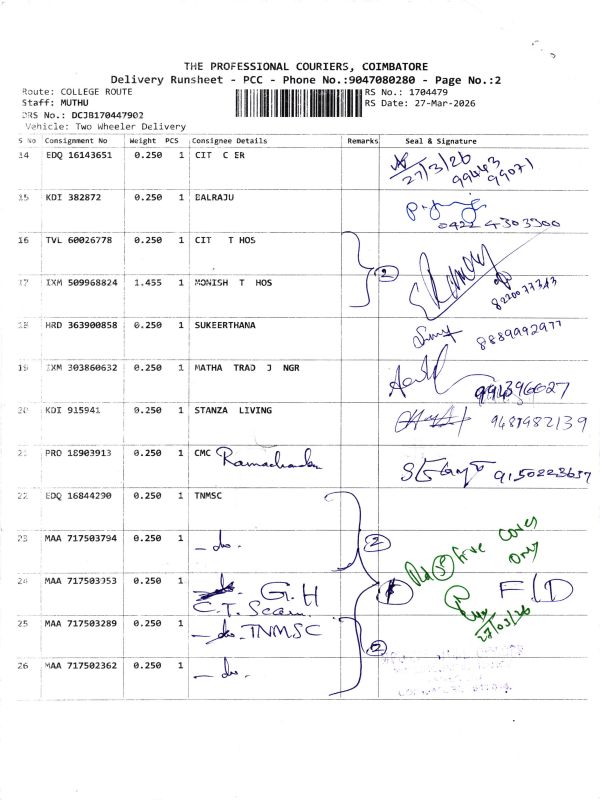 THE PROFESSIONAL COURIERS, COIMBATORE
Delivery Runsheet - PCC - Phone No.:9047080280 - Page No.:2
Route: COLLEGE ROUTE
RS No.: 1704479
Staff: MUTHU
RS Date: 27-Mar-2026
DRS No.: DCJB170447902
Vehicle: Two Wheeler Delivery
S No Consignment No Weight PCS Consignee Details Remarks Seal & Signature
14 EDQ 16143651 0.250 1 CIT C ER
27/3/26
99443
99071
15 KDI 382872 0.250 1 BALRAJU
0422 4303900
16 TVL 60026778 0.250 1 CIT T HOS
2
17 IXM 509968824 1.455 1 MONISH T HOS
8220077343
18 HRD 363900858 0.250 1 SUKEERTHANA
8889992977
19 IXM 303860632 0.250 1 MATHA TRAD J NGR
20 KDI 915941 0.250 1 STANZA LIVING
9487982139
21 PRO 18903913 0.250 1 CMC Ramachandra
9150223657
22 EDQ 16844290 0.250 1 TNMSC
23 MAA 717503794 0.250 1 - do.
2
Rd 5 five covers only
24 MAA 717503953 0.250 1 G.H
C.T. Scan
27/03/26
25 MAA 717503289 0.250 1 - do. TNMSC
2
26 MAA 717502362 0.250 1 - do.